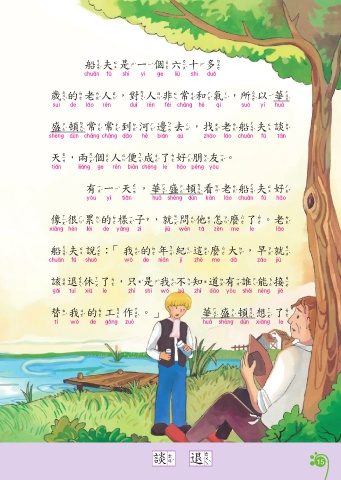 船夫是一個六十多
chuán fū shì yí ge liù shí duō
歲的老人，對人非常和氣，所以華
suì de lǎo rén duì rén fēi cháng hé qì suǒ yǐ huá
盛頓常常到河邊去，找老船夫談
shèng dùn cháng cháng dào hé biān qù zhǎo lǎo chuán fū tán
天，兩個人便成了好朋友。
tiān liǎng ge rén biàn chéng le hǎo péng yǒu
有一天，華盛頓看老船夫好
yǒu yì tiān huá shèng dùn kàn lǎo chuán fū hǎo
像很累的樣子，就問他怎麼了。老
xiàng hěn lèi de yàng zi jiù wèn tā zěn me le lǎo
船夫說：「我的年紀這麼大，早就
chuán fū shuō wǒ de nián jì zhè me dà zǎo jiù
該退休了，只是我不知道有誰能接
gāi tuì xiū le zhǐ shì wǒ bù zhī dào yǒu shéi néng jiē
替我的工作。」 華盛頓想了
tì wǒ de gōng zuò huá shèng dùn xiǎng le
談 退
15